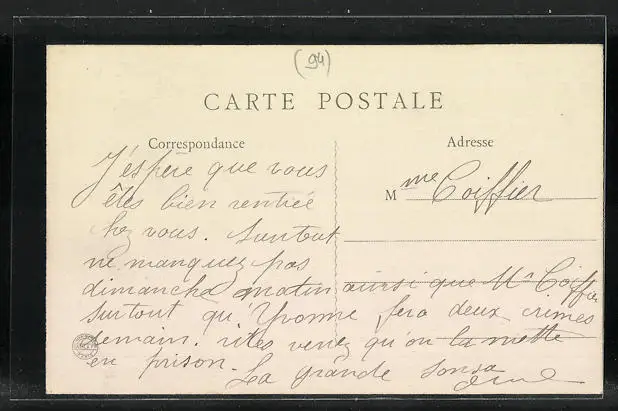 (94)
CARTE POSTALE
Correspondance
Adresse
J'éspère que vous
êtes bien rentrée
chez vous. Surtout
ne manquez pas
dimanche matin ainsi que Mr Coiffier
surtout qu'Yvonne fera deux crimes
demain. vites venez qu'on la mette
en prison. La grande
Mme Coiffier